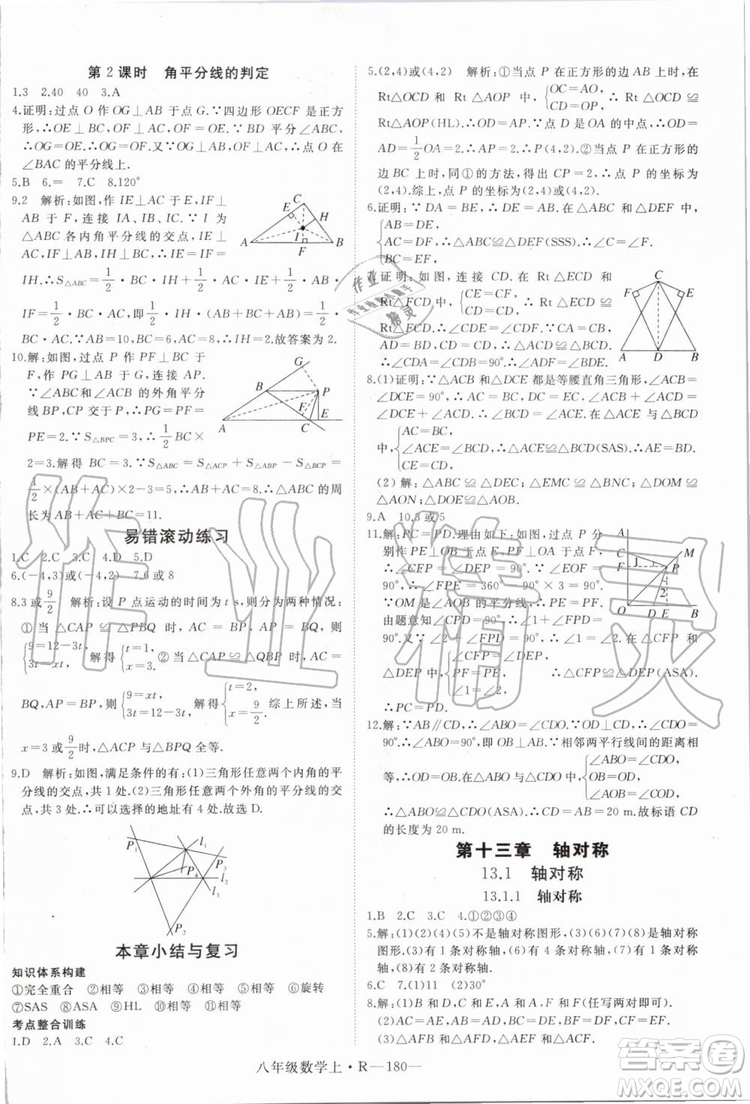 第2课时　角平分线的判定
1.3　2.40　40　3.A
4.证明:过点 O 作 OG⊥AB 于点 G.∵四边形 OECF 是正方
形,∴OE⊥BC,OF⊥AC,OE=OF.∵BD 平分∠ABC,
OG⊥AB,OE⊥BC,∴OG=OE,∴OG=OF,∴点 O 在
∠BAC 的平分线上.
5.B　6.=　7.C　8.120°
9.2　解析:如图,作 IE⊥AC 于 E,IF⊥AB
于 F,连接 IA、IC、IB.由题意知,I 是
△ABC 各内角平分线的交点,∴IE=IF=
IH.∴S△ABC=1/2·BC·IH+1/2·AC·IE+1/2·AB·
IF=1/2·BC·IH+1/2·AC·IH+1/2·AB·IH=1/2·AB
·BC.∵AC+BC+AB=10,BC=8,∴IH=2.故答案为2.
10.解:如图,过点 P 作 PF⊥BC 于
F,PG⊥AB,交 AB 的延长线于
G.∵BP 和 CP 是△ABC 的外角平分
线 BP,CP 交于点 P,∴PG=PF=
PE=2.∵S△BPC=2,∴1/2 BC×
2=2.解得 BC=2.∵S△ABC=S△ACP+S△ABP-S△BPC=
1/2×(AB+AC)×2-2=7,解得 AB+AC=9,∴△ABC 的周
长为 AB+AC+BC=11.
易错滚动练习
1.C　2.C　3.C　4.D　5.D
6.(-4,3)或(-4,2)　7.6或8
8.3或9/2　解析:设 P 点运动的时间为 t s,则分两种情况:
①当△CAP≌△PBQ 时,AC=BP,AP=BQ,
{9=12-3t, 3t=xt,解得{t=1, x=3;②当△CAP≌△QBP 时,AC=
BQ,AP=BP,{9=xt, 3t=12-3t,解得{t=2, x=9/2.综上所述,当
x=3或9/2时,△ACP 与△BPQ 全等.
9.D　解析:如图,满足条件的有:(1)三角形任意两个内角的平
分线的交点,共1处.(2)三角形任意两个外角的平分线的
交点,共3处.∴可以选择的地址有4处.故选D.
本章小结与复习
知识体系构建
①完全重合　②相等　③相等　④相等　⑤相等　⑥旋转
⑦SAS　⑧ASA　⑨HL　⑩相等　⑪相等
考点整合训练
1.D　2.A　3.C　4.D
5.(2,4)或(4,2)　解析:①当点 P 在正方形的边 AB 上时,在
Rt△OCD 和 Rt△AOP 中,{OC=AO, CD=OP,∴Rt△OCD≌
Rt△AOP(HL).∴OD=AP.∵点 D 是 OA 中点,∴OD=
AD=1/2 OA=2,∴AP=2,∴P(4,2).②当点 P 在正方形的
边 BC 上时,同①的方法,得出 CP=2.∴点 P 的坐标为
(2,4).综上,点 P 的坐标为(2,4)或(4,2).
6.证明:∵DA=BE,∴DE=AB.在△ABC 和△DEF 中,
{AB=DE, AC=DF, BC=EF,∴△ABC≌△DEF(SSS).∴∠C=∠F.
7.证明:如图,连接 CD.在 Rt△CED 和
Rt△FCD 中,{CE=CF, CD=CD,∴Rt△CED≌
Rt△FCD.∴∠CDE=∠CDF.∵∠ADF=
∠BDE,∴∠CDE+∠BDE=∠CDF+∠ADF,即
∠CDA=∠CDB=90°.∴CD⊥AB.
8.(1)证明:∵△ACB 和△DCE 都是等腰直角三角形,∠ACB=
∠DCE=90°,∴AC=BC,DC=EC,∠ACB+∠ACE=
∠DCE+∠ACE,∴∠BCE=∠ACD,在△ACD 和△BCE
中,{AC=BC, ∠ACD=∠BCE, CD=CE,∴△ACD≌△BCE(SAS).∴AD=BE.
(2)解:△ACB≌△DCE;△EMC≌△BNC;△DOM≌
△AON;△AOE≌△DOB.
9.A　10.3或5
11.解:PC=PD.理由如下:如图,过点 P 分
别作 PE⊥OB 于 E,PF⊥OA 于
F,∴∠CFP=∠DEP=90°.∵∠EOF=
90°,∴∠FPE=360°-90°×3=90°.
∵OM 是∠AOB 的平分线,∴PE=PF.
由题意知∠CPD=90°,∴∠CPF=
90°-∠FPD,∠DPE=90°-∠FPD.∴∠CPF=∠DPE.在
△CFP 和△DEP 中,{∠CFP=∠DEP, PF=PE, ∠CPF=∠DPE,∴△CFP≌△DEP(ASA).
∴PC=PD.
12.解:∵AB∥CD,∴∠ABO=∠CDO.∵OD⊥CD,∴∠CDO=
90°,∴∠ABO=90°,即 OB⊥AB.∵相邻两平行线间的距离
相等,∴OD=OB.在△ABO 与△CDO 中,
{∠ABO=∠CDO, OB=OD, ∠AOB=∠COD,∴△ABO≌△CDO(ASA).∴CD=AB=20 m.故标语 CD
的长度为20 m.
第十三章　轴对称
13.1　轴对称
13.1.1　轴对称
1.B　2.C　3.C　4.①②③④
5.解:(1)(2)(4)(5)不是轴对称图形;(3)(6)(7)(8)是轴对称
图形.(3)有1条对称轴;(6)有2条对称轴;(7)有4条对称
轴;(8)有1条对称轴.
6.C　7.(1)1　(2)30°
8.解:(1)B 和 D,C 和 E,BF 和 DF(任写两对即可);
八年级数学上·R—180—